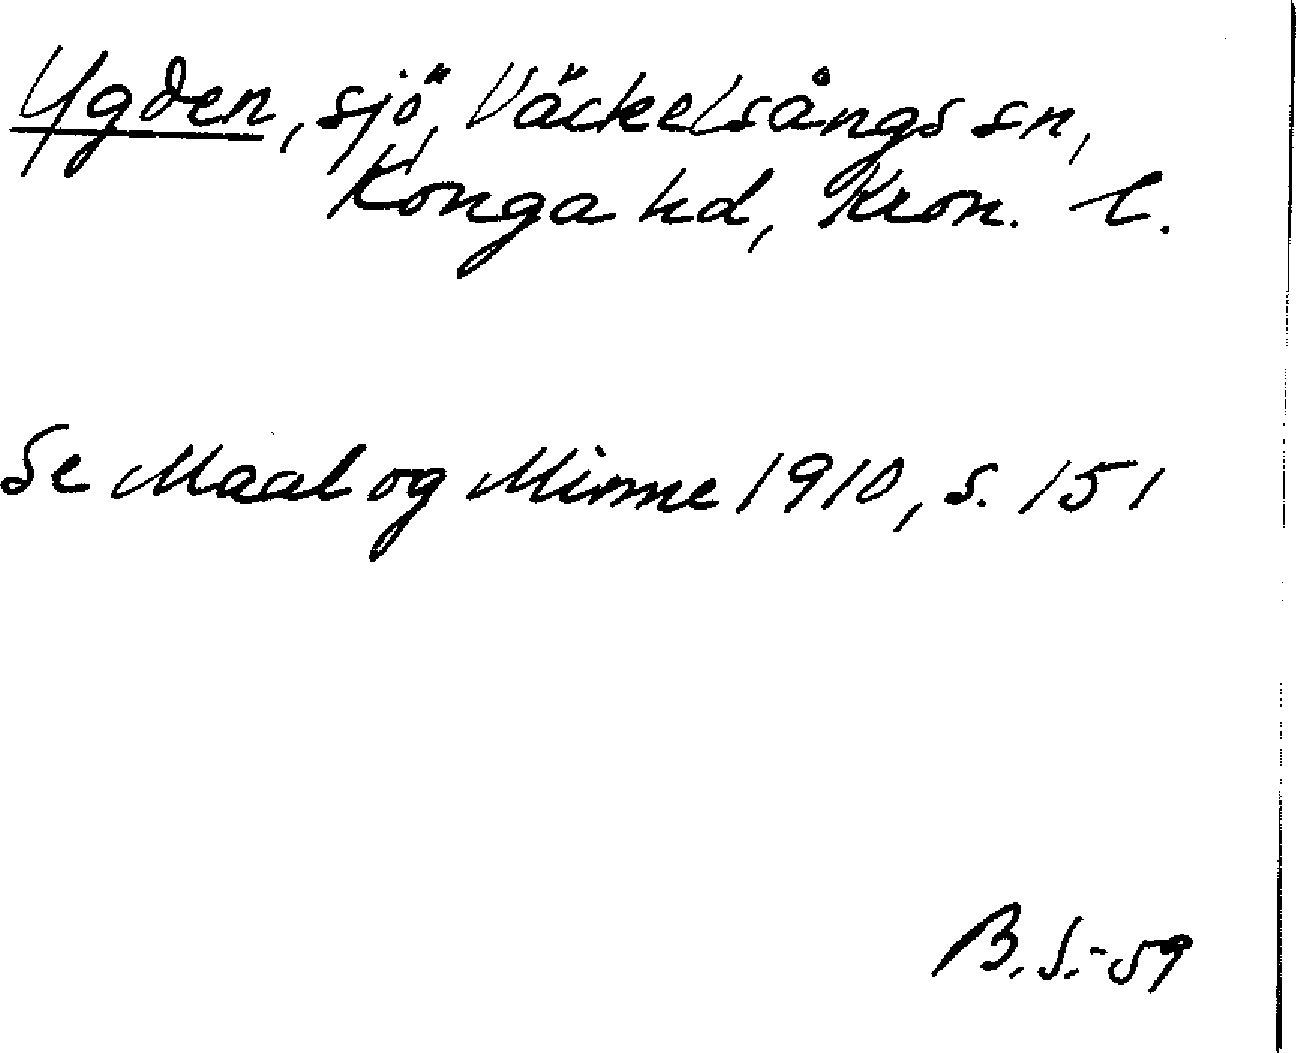 Ygden, sjö, Väckelsångs sn,
Konga hd, Kron. l.
Se Maal og Minne 1910, s. 151
B. S. -59